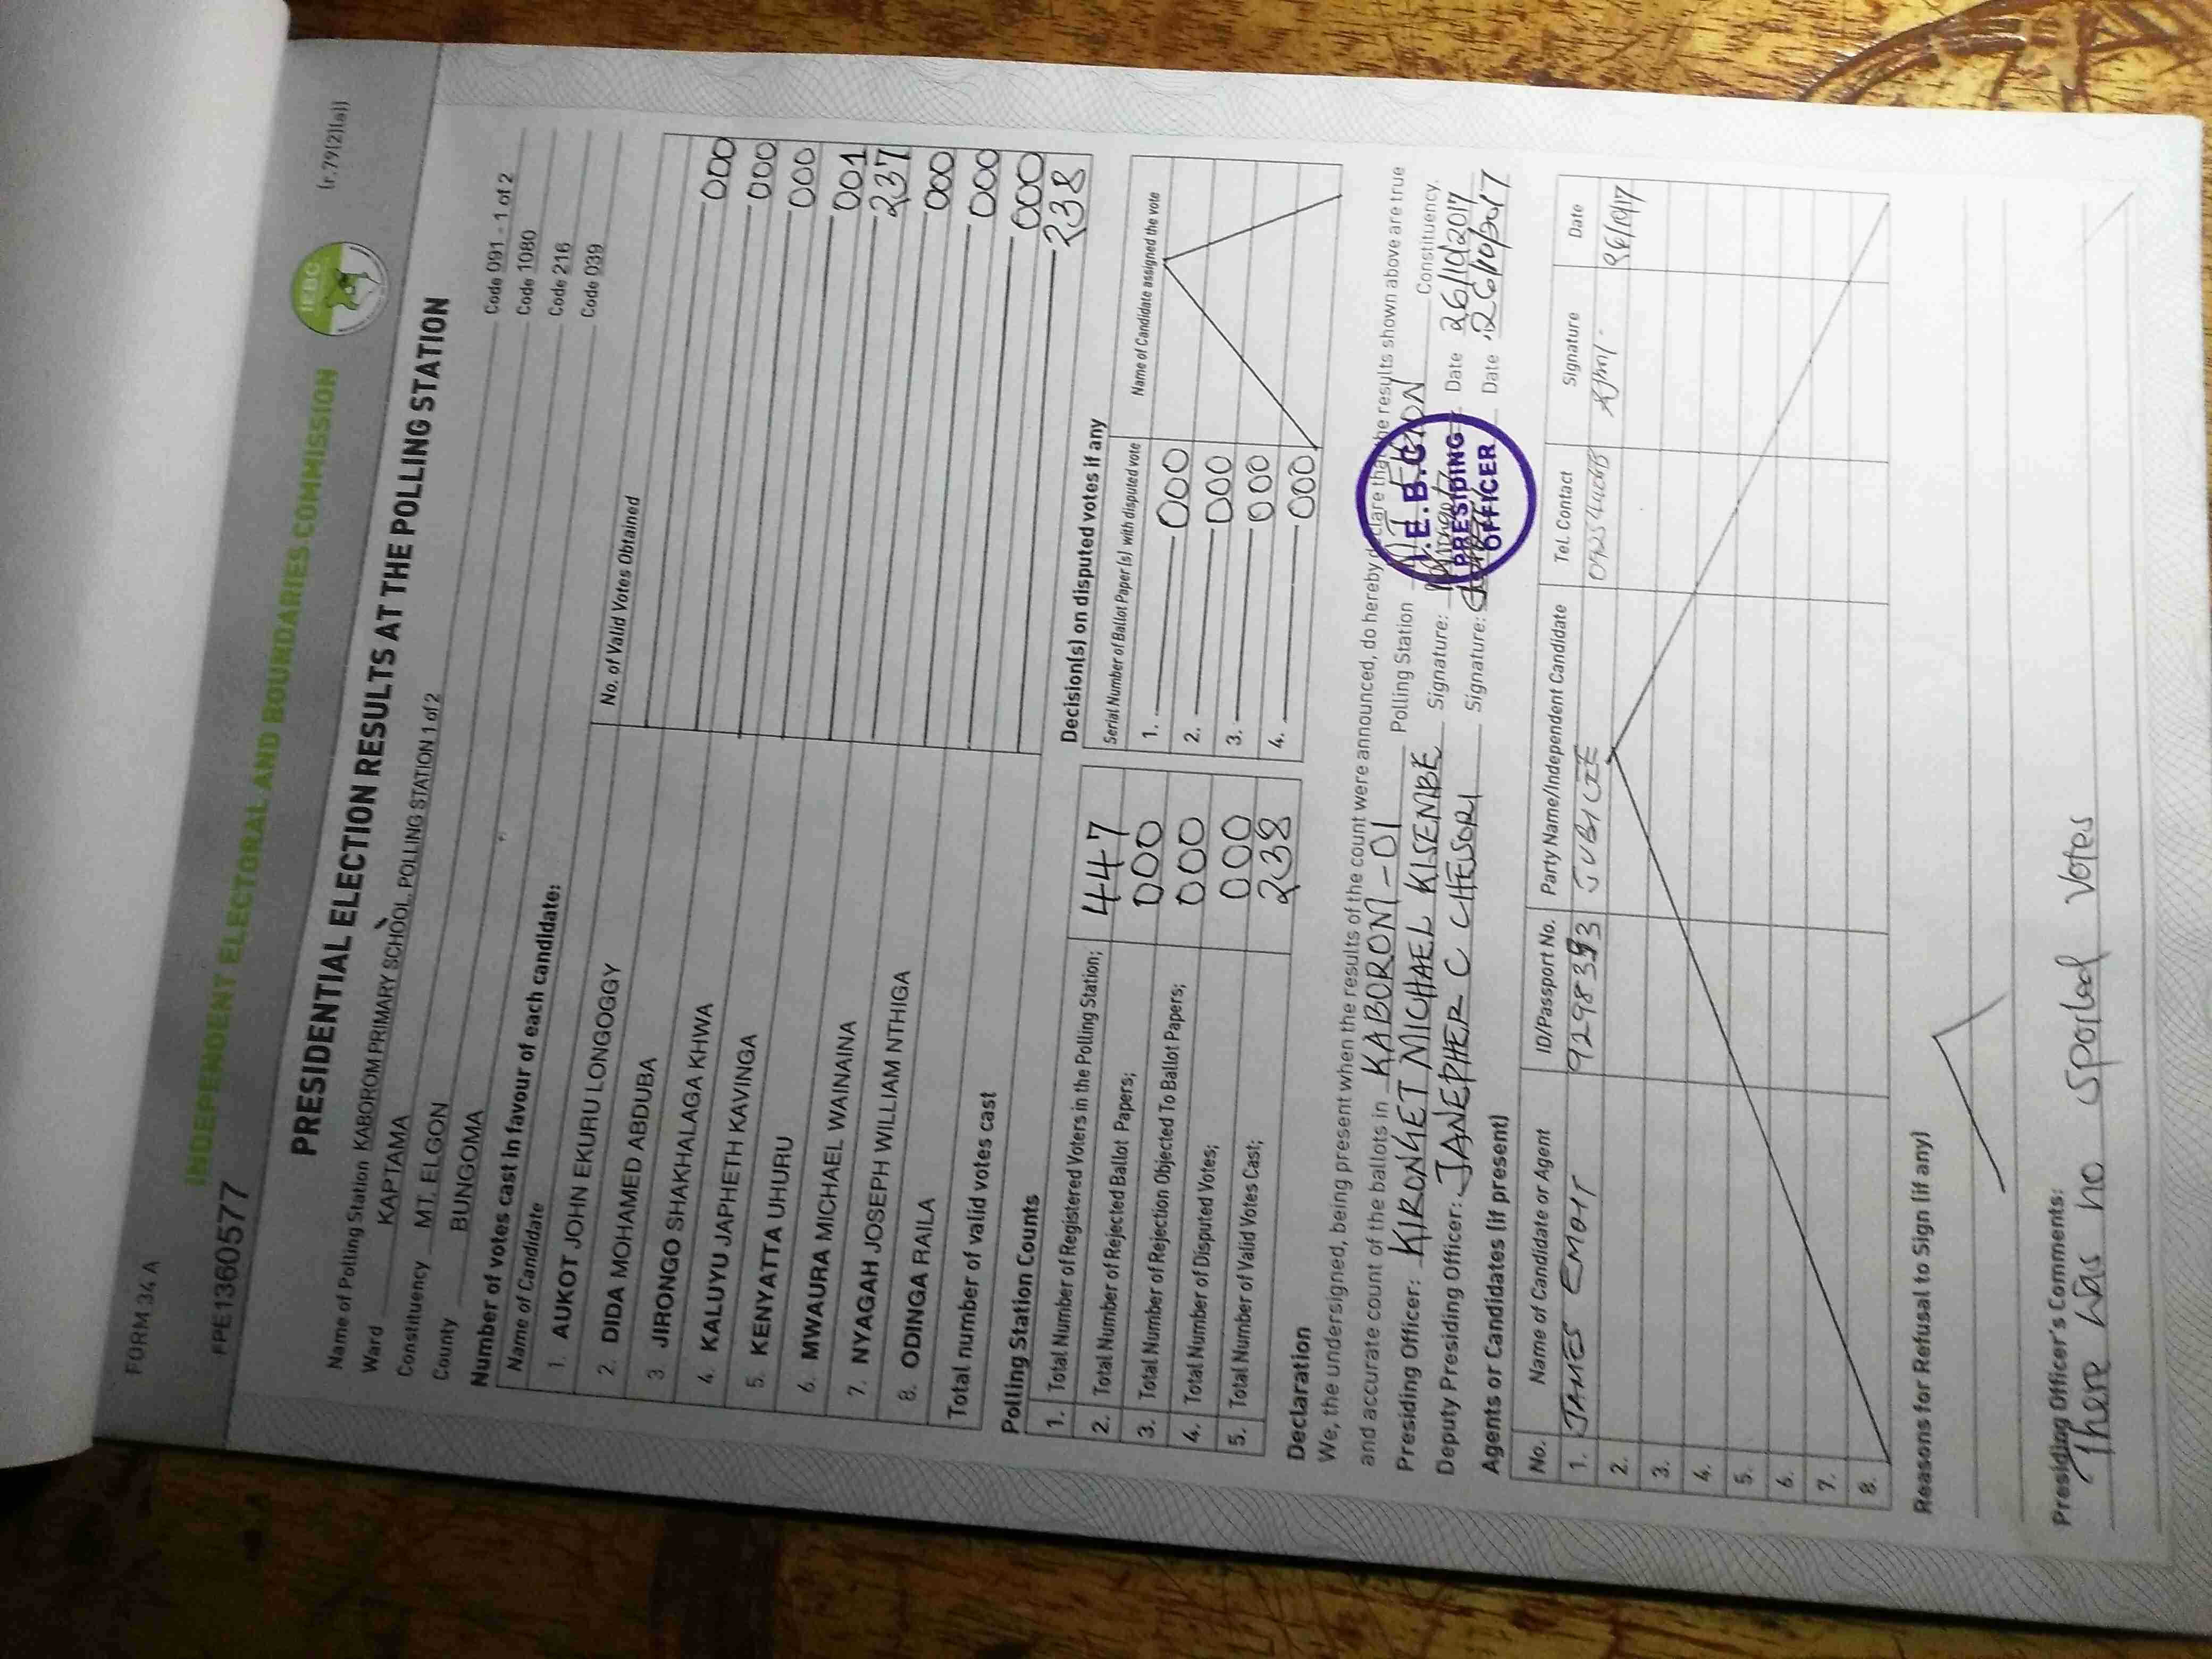 FORM 34 A
(r.79(2)(a))
IEBC
FPE1360577
INDEPENDENT ELECTORAL AND BOUNDARIES COMMISSION
PRESIDENTIAL ELECTION RESULTS AT THE POLLING STATION
Name of Polling Station KABOROM PRIMARY SCHOOL POLLING STATION 1 of 2 Code 091 - 1 of 2
Ward KAPTAMA Code 1080
Constituency MT. ELGON Code 216
County BUNGOMA Code 039
Number of votes cast in favour of each candidate:
Name of Candidate No. of Valid Votes Obtained
1. AUKOT JOHN EKURU LONGOGGY 000
2. DIDA MOHAMED ABDUBA 000
3 JIRONGO SHAKHALAGA KHWA 000
4. KALUYU JAPHETH KAVINGA 001
5. KENYATTA UHURU 237
6. MWAURA MICHAEL WAINAINA 000
7. NYAGAH JOSEPH WILLIAM NTHIGA 000
8. ODINGA RAILA 000
Total number of valid votes cast 238
Polling Station Counts
1. Total Number of Registered Voters in the Polling Station; 447
2. Total Number of Rejected Ballot Papers; 000
3. Total Number of Rejection Objected To Ballot Papers; 000
4. Total Number of Disputed Votes; 000
5. Total Number of Valid Votes Cast; 238
Decision(s) on disputed votes if any
Serial Number of Ballot Paper (s) with disputed vote Name of Candidate assigned the vote
1. 000
2. 000
3. 000
4. 000
Declaration
We, the undersigned, being present when the results of the count were announced, do hereby declare that the results shown above are true
and accurate count of the ballots in KABOROM - 01 Polling Station MT. ELGON Constituency.
Presiding Officer: KIRONGET MICHAEL KISEMBE Signature: Date 26/10/2017
Deputy Presiding Officer: JANEPHER C CHESORI Signature: Date 26/10/2017
I.E.B.C
PRESIDING
OFFICER
Agents or Candidates (if present)
No. Name of Candidate or Agent ID/Passport No. Party Name/Independent Candidate Tel. Contact Signature Date
1. JAMES EMOIT JUBILEE
2.
3.
4.
5.
6.
7.
8.
Reasons for Refusal to Sign (if any)
Presiding Officer's Comments:
There was no spoiled votes